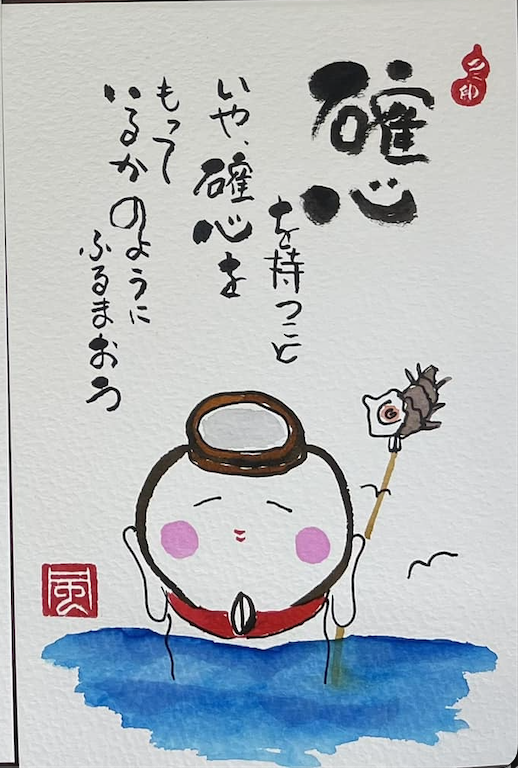 確心
を持つこと
いや、確心を
もって
いるかのように
ふるまおう
風